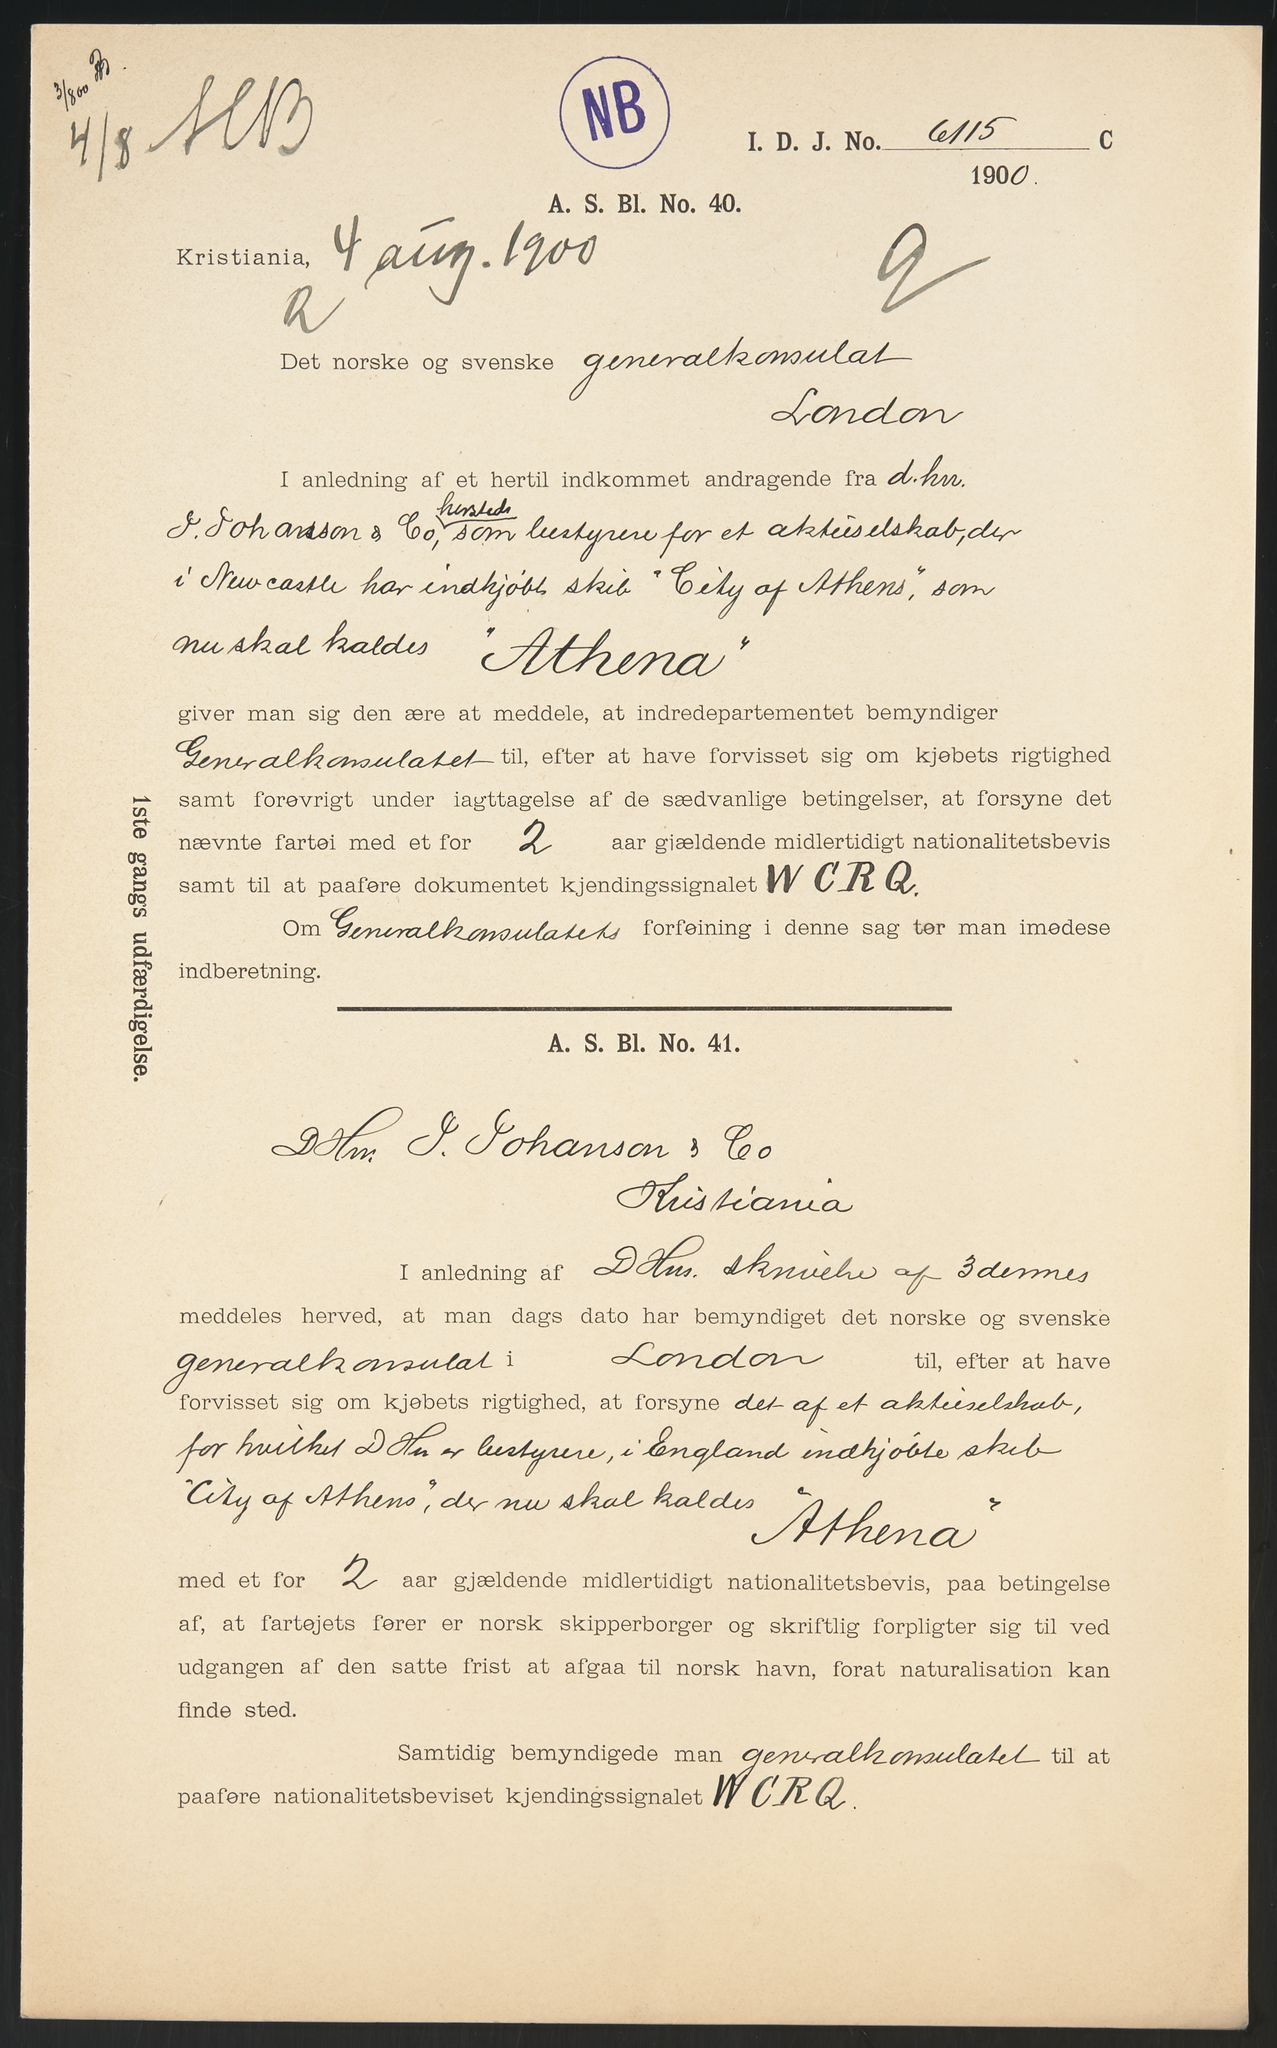 3/8 00
4/8
NB
I. D. J. No. 6115 C
1900.
A. S. Bl. No. 40.
Kristiania, 4 aug. 1900
Det norske og svenske generalkonsulat
London
I anledning af et hertil indkommet andragende fra d.hrr.
hersteds
J. Johansson & Co, som bestyrere for et aktieselskab, der
i Newcastle har indkjøbt skib "City of Athens", som
nu skal kaldes "Athena"
giver man sig den ære at meddele, at indredepartementet bemyndiger
Generalkonsulatet til, efter at have forvisset sig om kjøbets rigtighed
samt forøvrigt under iagttagelse af de sædvanlige betingelser, at forsyne det
nævnte fartøi med et for 2 aar gjældende midlertidigt nationalitetsbevis
samt til at paaføre dokumentet kjendingssignalet WCRQ.
Om Generalkonsulatets forføining i denne sag tør man imødese
indberetning.
1ste gangs udfærdigelse.
A. S. Bl. No. 41.
DHrr. J. Johanson & Co
Kristiania
I anledning af DHrs. skrivelse af 3 dennes
meddeles herved, at man dags dato har bemyndiget det norske og svenske
generalkonsulat i London til, efter at have
forvisset sig om kjøbets rigtighed, at forsyne det af et aktieselskab,
for hvilket DHrr er bestyrere, i England indkjøbte skib
"City of Athens", der nu skal kaldes "Athena"
med et for 2 aar gjældende midlertidigt nationalitetsbevis, paa betingelse
af, at fartøjets fører er norsk skipperborger og skriftlig forpligter sig til ved
udgangen af den satte frist at afgaa til norsk havn, forat naturalisation kan
finde sted.
Samtidig bemyndigede man generalkonsulatet til at
paaføre nationalitetsbeviset kjendingssignalet WCRQ.